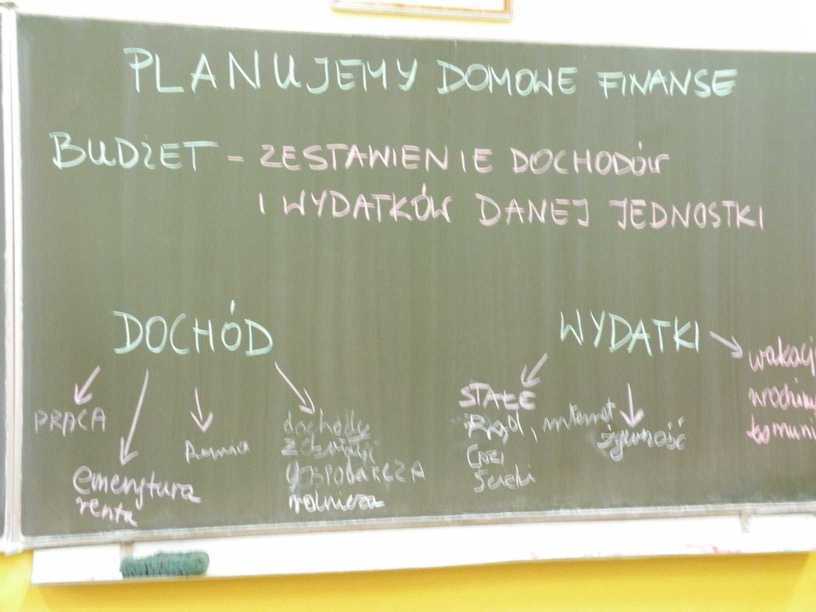 PLANUJEMY DOMOWE FINANSE
BUDŻET - ZESTAWIENIE DOCHODÓW
I WYDATKÓW DANEJ JEDNOSTKI
DOCHÓD
PRACA
emerytura
renta
dochody
GOSPODARCZA
rolnicza
WYDATKI
STAŁE
PRĄD, internet
żywność
wakacj
komuni